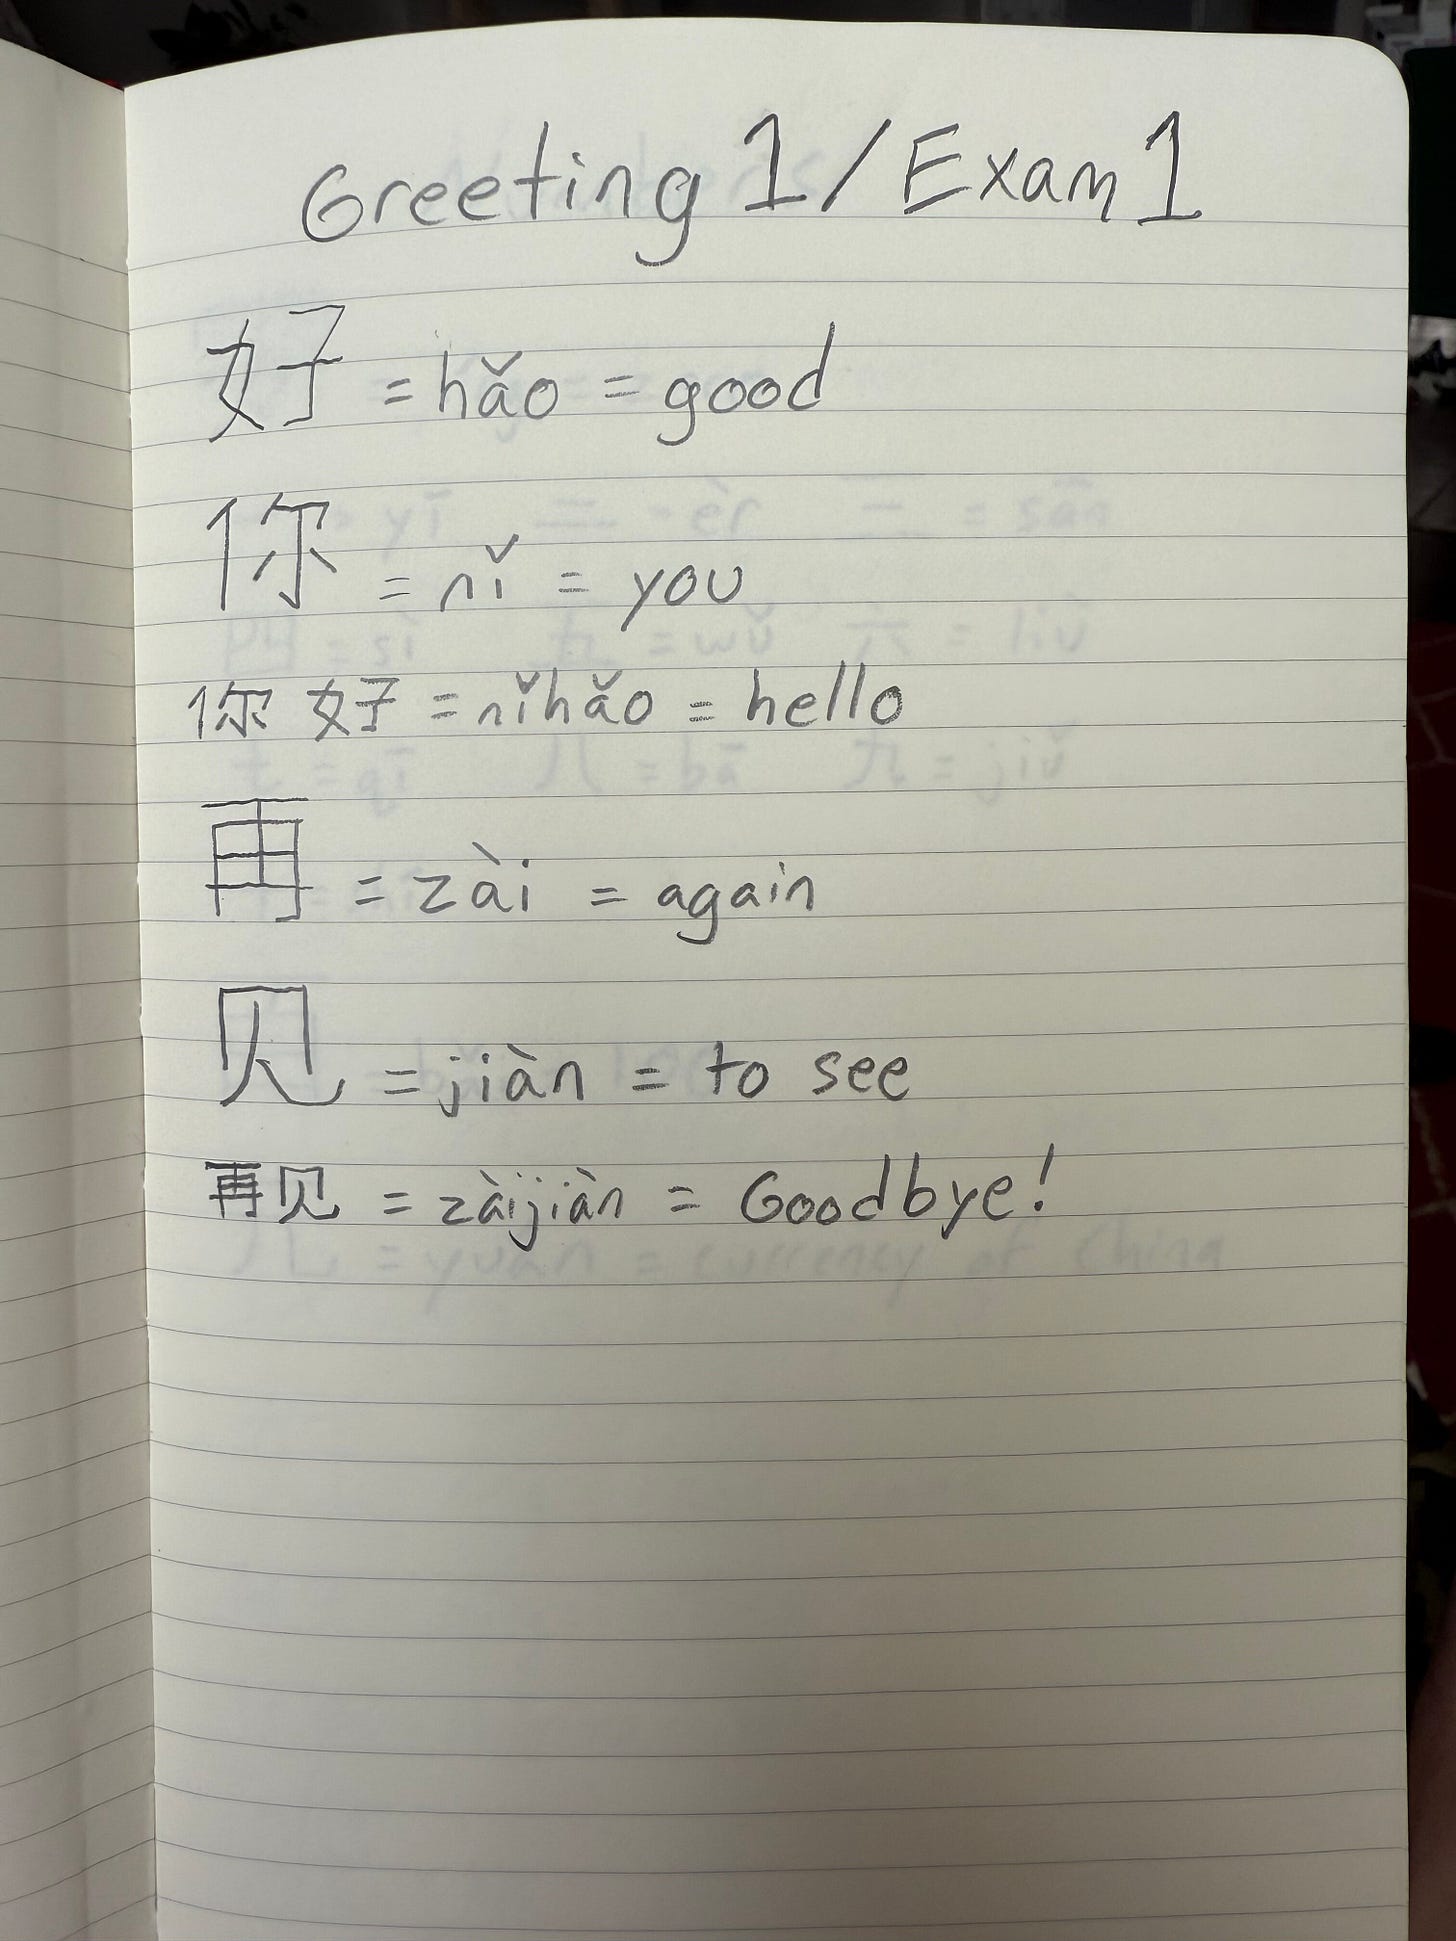 Greeting 1 / Exam 1
好 = hǎo = good
你 = nǐ = you
你 好 = nǐhǎo = hello
再 = zài = again
见 = jiàn = to see
再见 = zàijiàn = Goodbye!